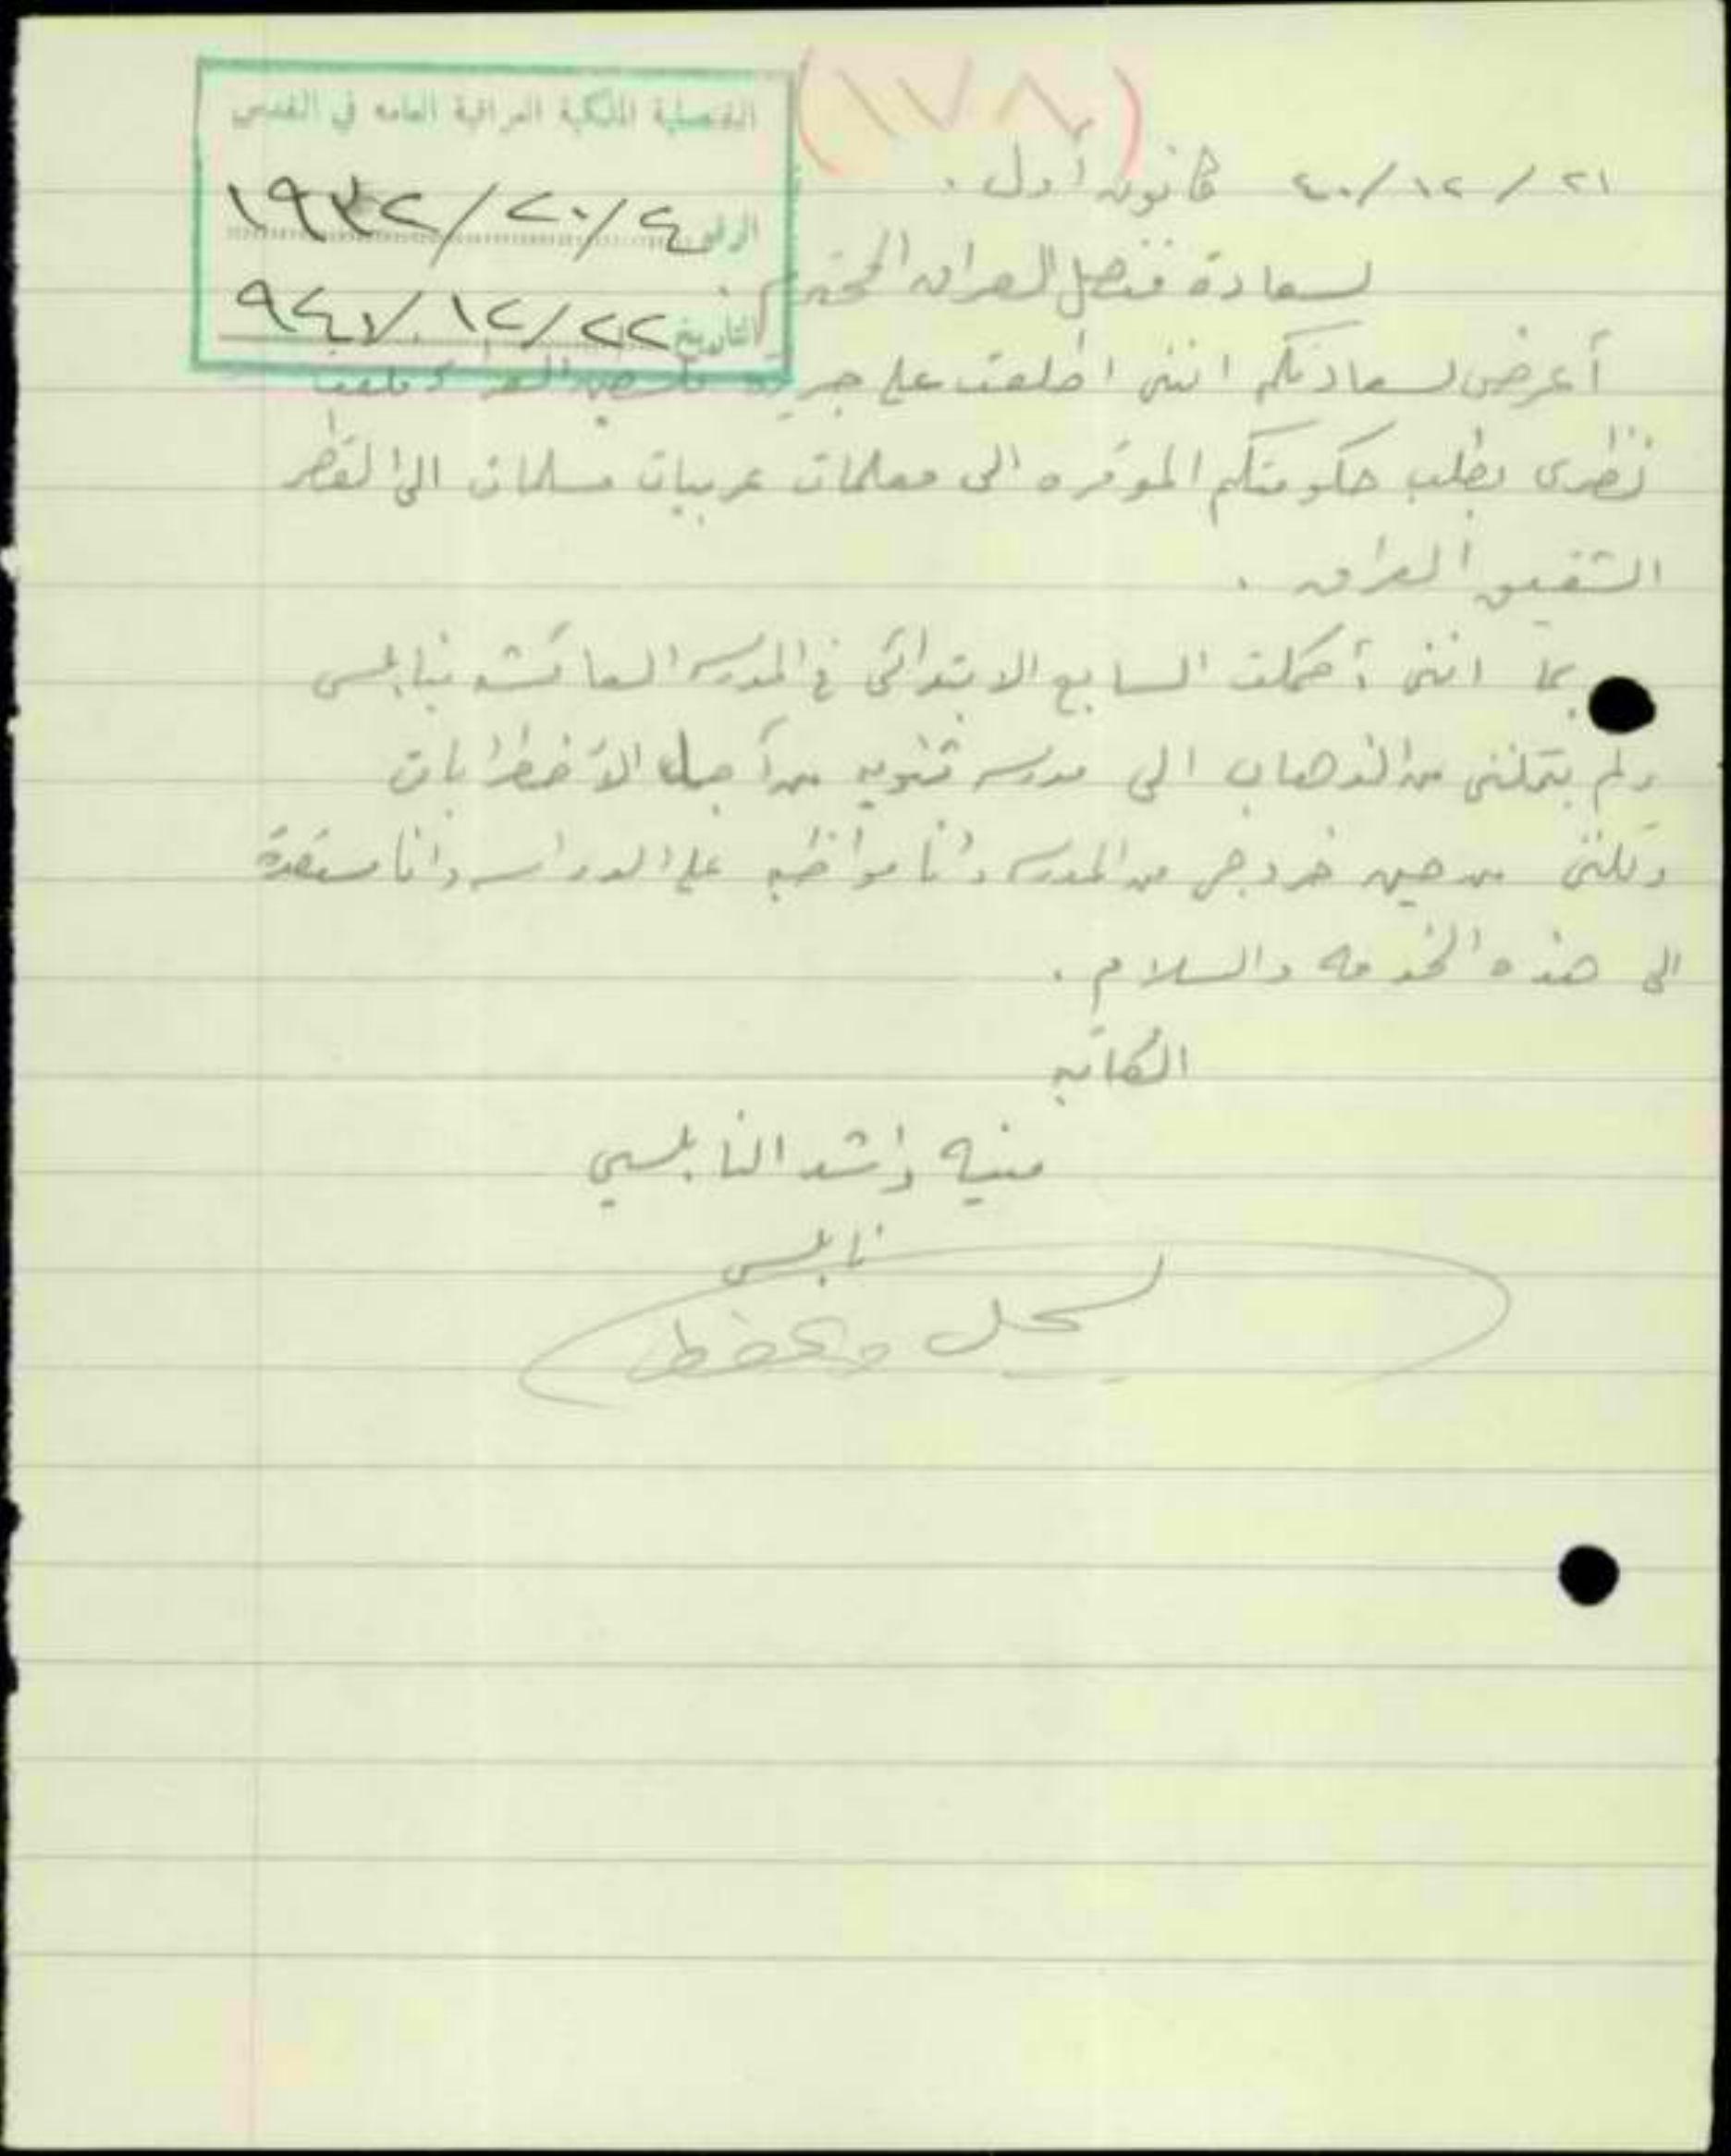 (١٧٨)
القنصلية الملكية العراقية العامه في القدس
الرقم ٤/٢٠/١٩٣٢
التاريخ ٢٢/١٢/٩٤٠
٢١/١٢/٤٠ كانون أول .
لسعادة قنصل العراق المحترم .
أعرض لسعادتكم انني اطلعت على جريدة فلسطين
نظرى بطلب حكومتكم الموقره الى معلمات عربيات مسلمات الى القطر
الشقيق العراق .
بما انني أكملت السابع الابتدائي في المدرسه العائشه بنابلس
ولم يتمكنني من الذهاب الى مدرسه ثنويه من أجل الأضطرابات
ولكنني من حين خروجي من المدرسه وانا مواظبه على الدراسه وانا مستعدة
الى هذه الخدمه والسلام .
الكاتبه
منيه راشد النابلسي
نابلس
يسجل ويحفظ